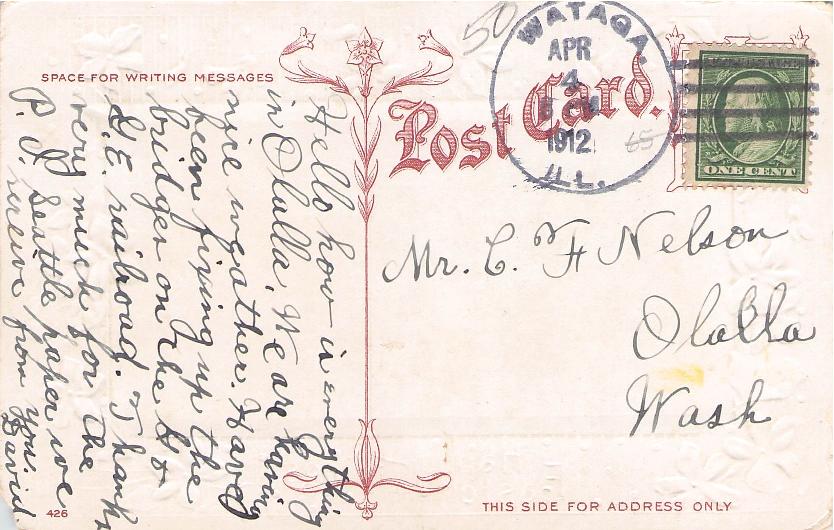 SPACE FOR WRITING MESSAGES
Post Card.
50
WATAGA.
APR
4
1912
ILL.
65
ONE CENT
Mr. C. F Nelson
Olalla
Wash
Hello how is everything
in Olalla. We are having
nice weather. Have
been fixing up the
bridges on the G &
G.E. railroad. Thanks
very much for the
P. I. Seattle paper we
receive from you.
David
426
THIS SIDE FOR ADDRESS ONLY